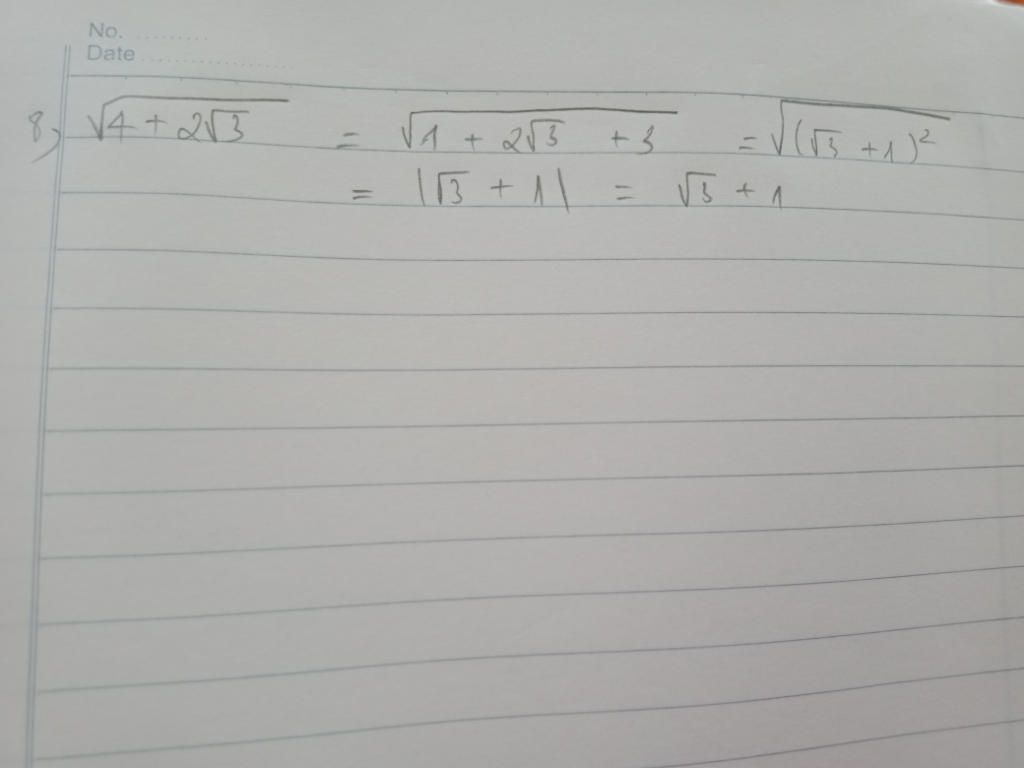 No. .........
Date ..................
8) √(4 + 2√3) = √(1 + 2√3 + 3) = √((√3 + 1)²)
= |√3 + 1| = √3 + 1